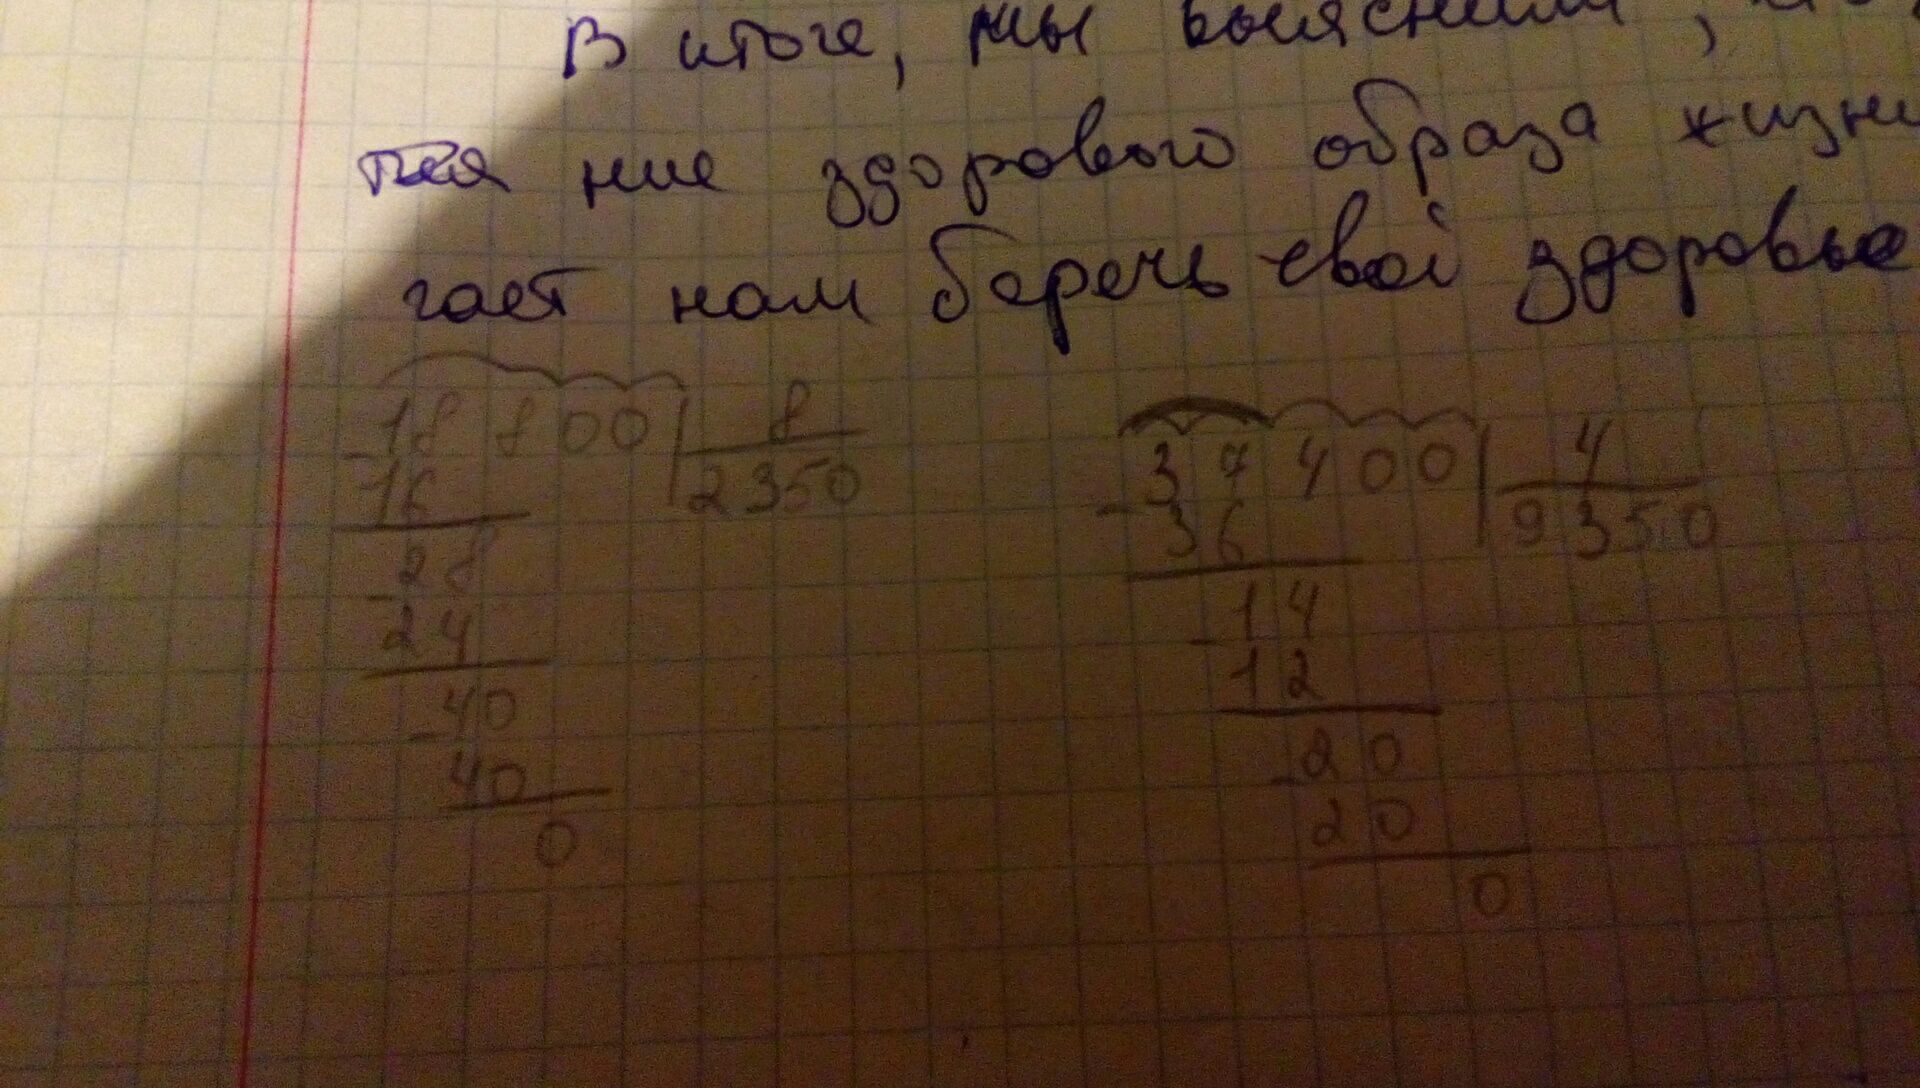 В итоге, мы выяснили,
ние здорового образа жизни
гает нам беречь свой здоровье
18 800 | 8
16 2350
28
24
40
40
0
37400 | 4
36 9350
14
12
20
20
0